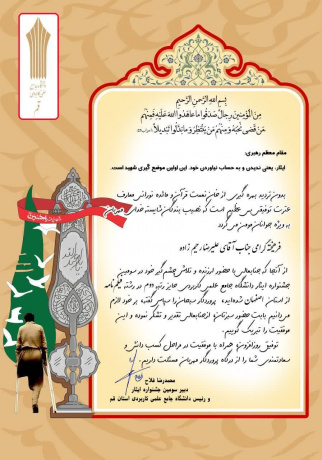 دانشگاه جامع
علمی کاربردی
قم
بسم الله الرحمن الرحیم
مِنَ الْمُؤْمِنینَ رِجالٌ صَدَقُوا ما عاهَدُوا اللهَ عَلَیْهِ فَمِنْهُمْ
مَنْ قَضی نَحْبَهُ وَ مِنْهُمْ مَنْ یَنْتَظِرُ وَ ما بَدَّلُوا تَبْدیلاً
مقام معظم رهبری:
ایثار، یعنی ندیدن و به حساب نیاوردن خود. این اولین موضع گیری شهید است.
بدون تردید بهره گیری از خوان نعمت قرآن و مائده نورانی معارف
عترت توفیقی بس عظیم است که نصیب بندگان شایسته خدای
به ویژه جوانان مومن می گردد
فرهیخته گرامی جناب آقای علیرضا رحیم زاده
از آنجا که جنابعالی با حضور ارزنده و تلاش چشم گیر خود در سومین
جشنواره ایثار دانشگاه جامع علمی کاربردی حایز رتبه دوم در رشته فیلم نامه
از استان اصفهان شده اید، پروردگار سبحان را سپاس گفته بر خود لازم
می دانیم بابت حضور سبزتان از جنابعالی تقدیر و تشکر نموده و این
موفقیت را تبریک گوییم.
توفیق روزافزون همراه با موفقیت در مراحل کسب دانش و
سعادتمندی شما را از درگاه پروردگار مهربان مسئلت داریم.
محمدرضا فلاح
دبیر سومین جشنواره ایثار
و رئیس دانشگاه جامع علمی کاربردی استان قم